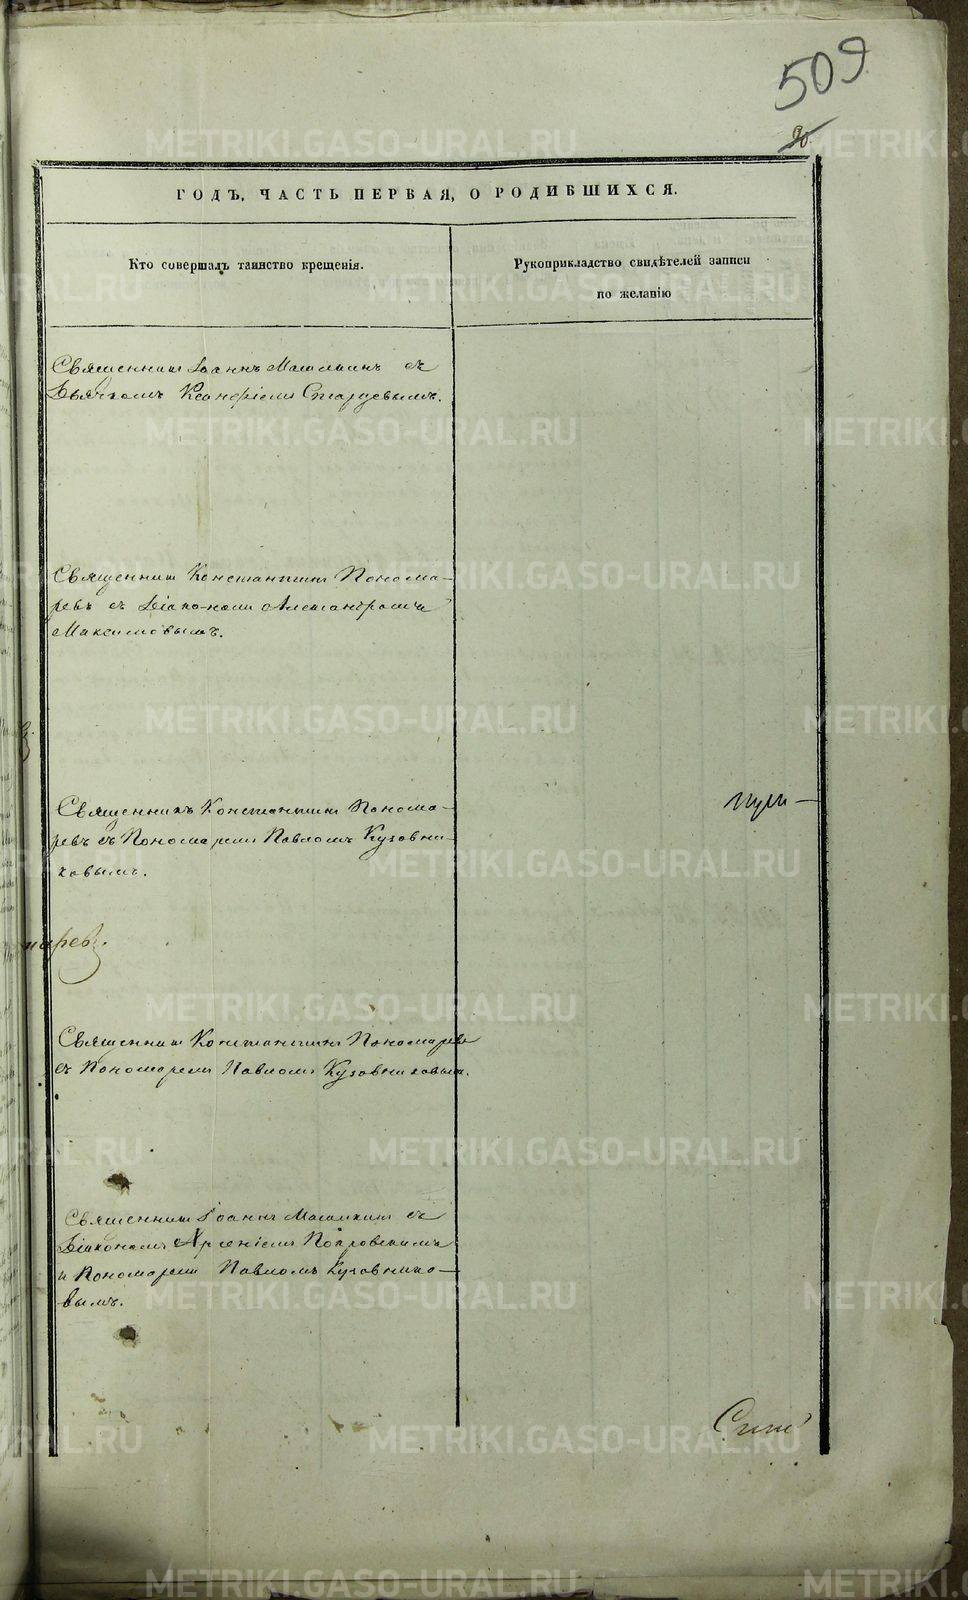 509
90
ГОДЪ, ЧАСТЬ ПЕРВАЯ, О РОДИВШИХСЯ.
Кто совершалъ таинство крещенія.
Рукоприкладство свидѣтелей записи
по желанію
Священникъ Іоаннъ съ
Дьячкомъ Старцевымъ.
Священникъ Константинъ Понома-
ревъ съ Діакономъ Александромъ
Максимовымъ.
Священникъ Константинъ Понома-
ревъ съ Пономаремъ Павломъ Кузовни-
ковымъ.
Священникъ Константинъ Пономаревъ
съ Пономаремъ Павломъ Кузовниковымъ.
Священникъ Іоаннъ съ
Діакономъ Арсеніемъ Покровскимъ
и Пономаремъ Павломъ Кузовнико-
вымъ.
METRIKI.GASO-URAL.RU